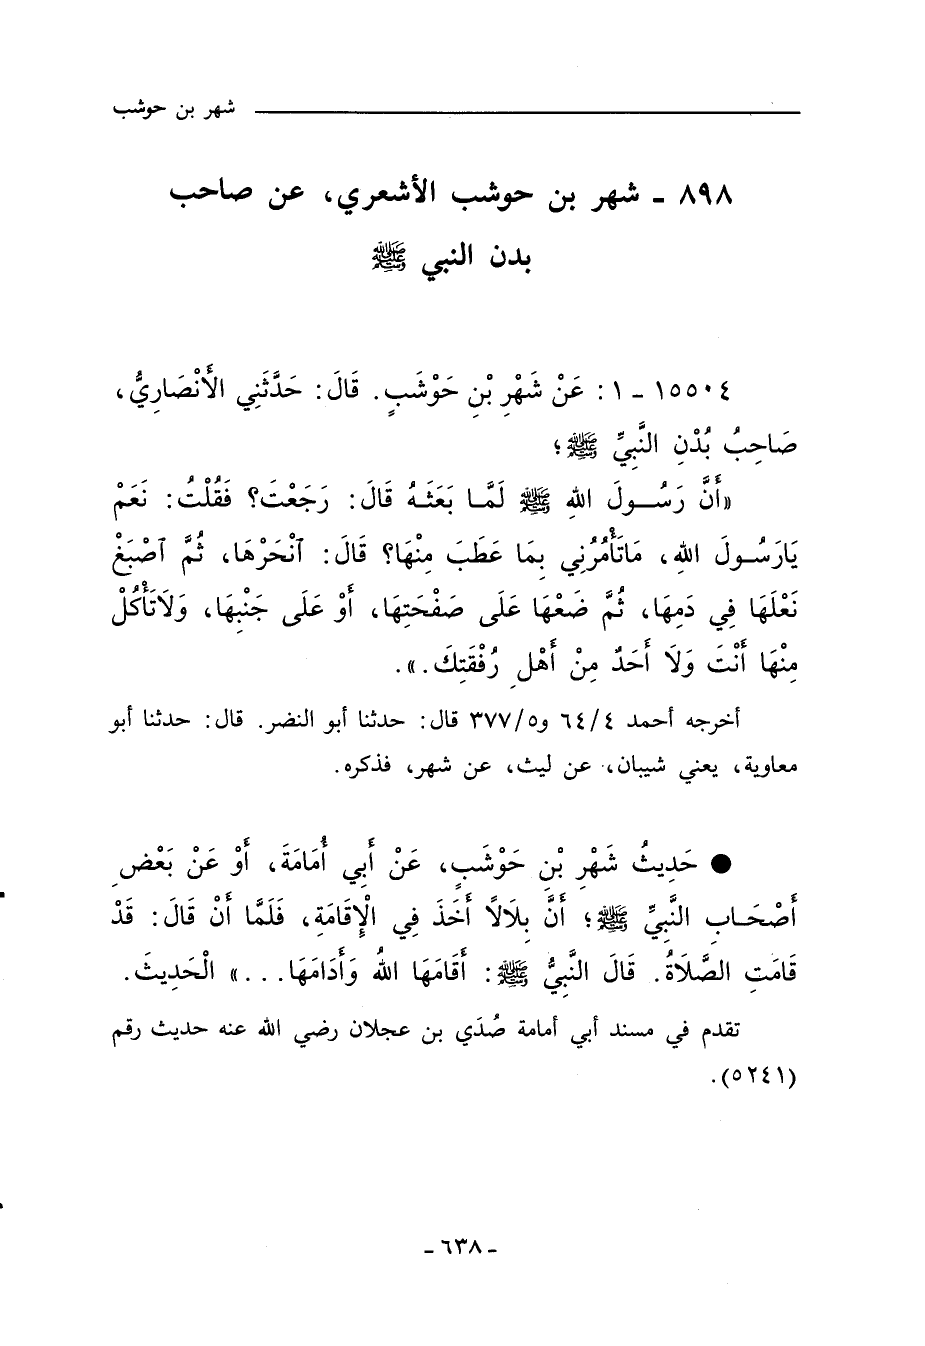 شهر بن حوشب
٨٩٨ ـ شهر بن حوشب الأشعري، عن صاحب
بدن النبي ﷺ
١٥٥٠٤ ـ ١ : عَنْ شَهْرِ بْنِ حَوْشَبٍ. قَالَ: حَدَّثَنِي الأَنْصَارِيُّ،
صَاحِبُ بُدْنِ النَّبِيِّ ﷺ؛
«أَنَّ رَسُولَ اللهِ ﷺ لَمَّا بَعَثَهُ قَالَ: رَجَعْتَ؟ فَقُلْتُ: نَعَمْ
يَارَسُولَ اللهِ، مَاتَأْمُرُنِي بِمَا عَطَبَ مِنْهَا؟ قَالَ: ٱنْحَرْهَا، ثُمَّ ٱصْبَغْ
نَعْلَهَا فِي دَمِهَا، ثُمَّ ضَعْهَا عَلَى صَفْحَتِهَا، أَوْ عَلَى جَنْبِهَا، وَلَاتَأْكُلْ
مِنْهَا أَنْتَ وَلَا أَحَدٌ مِنْ أَهْلِ رُفْقَتِكَ.».
أخرجه أحمد ٦٤/٤ و٣٧٧/٥ قال: حدثنا أبو النضر. قال: حدثنا أبو
معاوية، يعني شيبان، عن ليث، عن شهر، فذكره.
● حَدِيثُ شَهْرِ بْنِ حَوْشَبٍ، عَنْ أَبِي أُمَامَةَ، أَوْ عَنْ بَعْضِ
أَصْحَابِ النَّبِيِّ ﷺ؛ أَنَّ بِلَالاً أَخَذَ فِي الْإِقَامَةِ، فَلَمَّا أَنْ قَالَ: قَدْ
قَامَتِ الصَّلَاةُ. قَالَ النَّبِيُّ ﷺ: أَقَامَهَا اللهُ وَأَدَامَهَا...» الْحَدِيثَ.
تقدم في مسند أبي أمامة صُدَي بن عجلان رضي الله عنه حديث رقم
(٥٢٤١).
- ٦٣٨ -